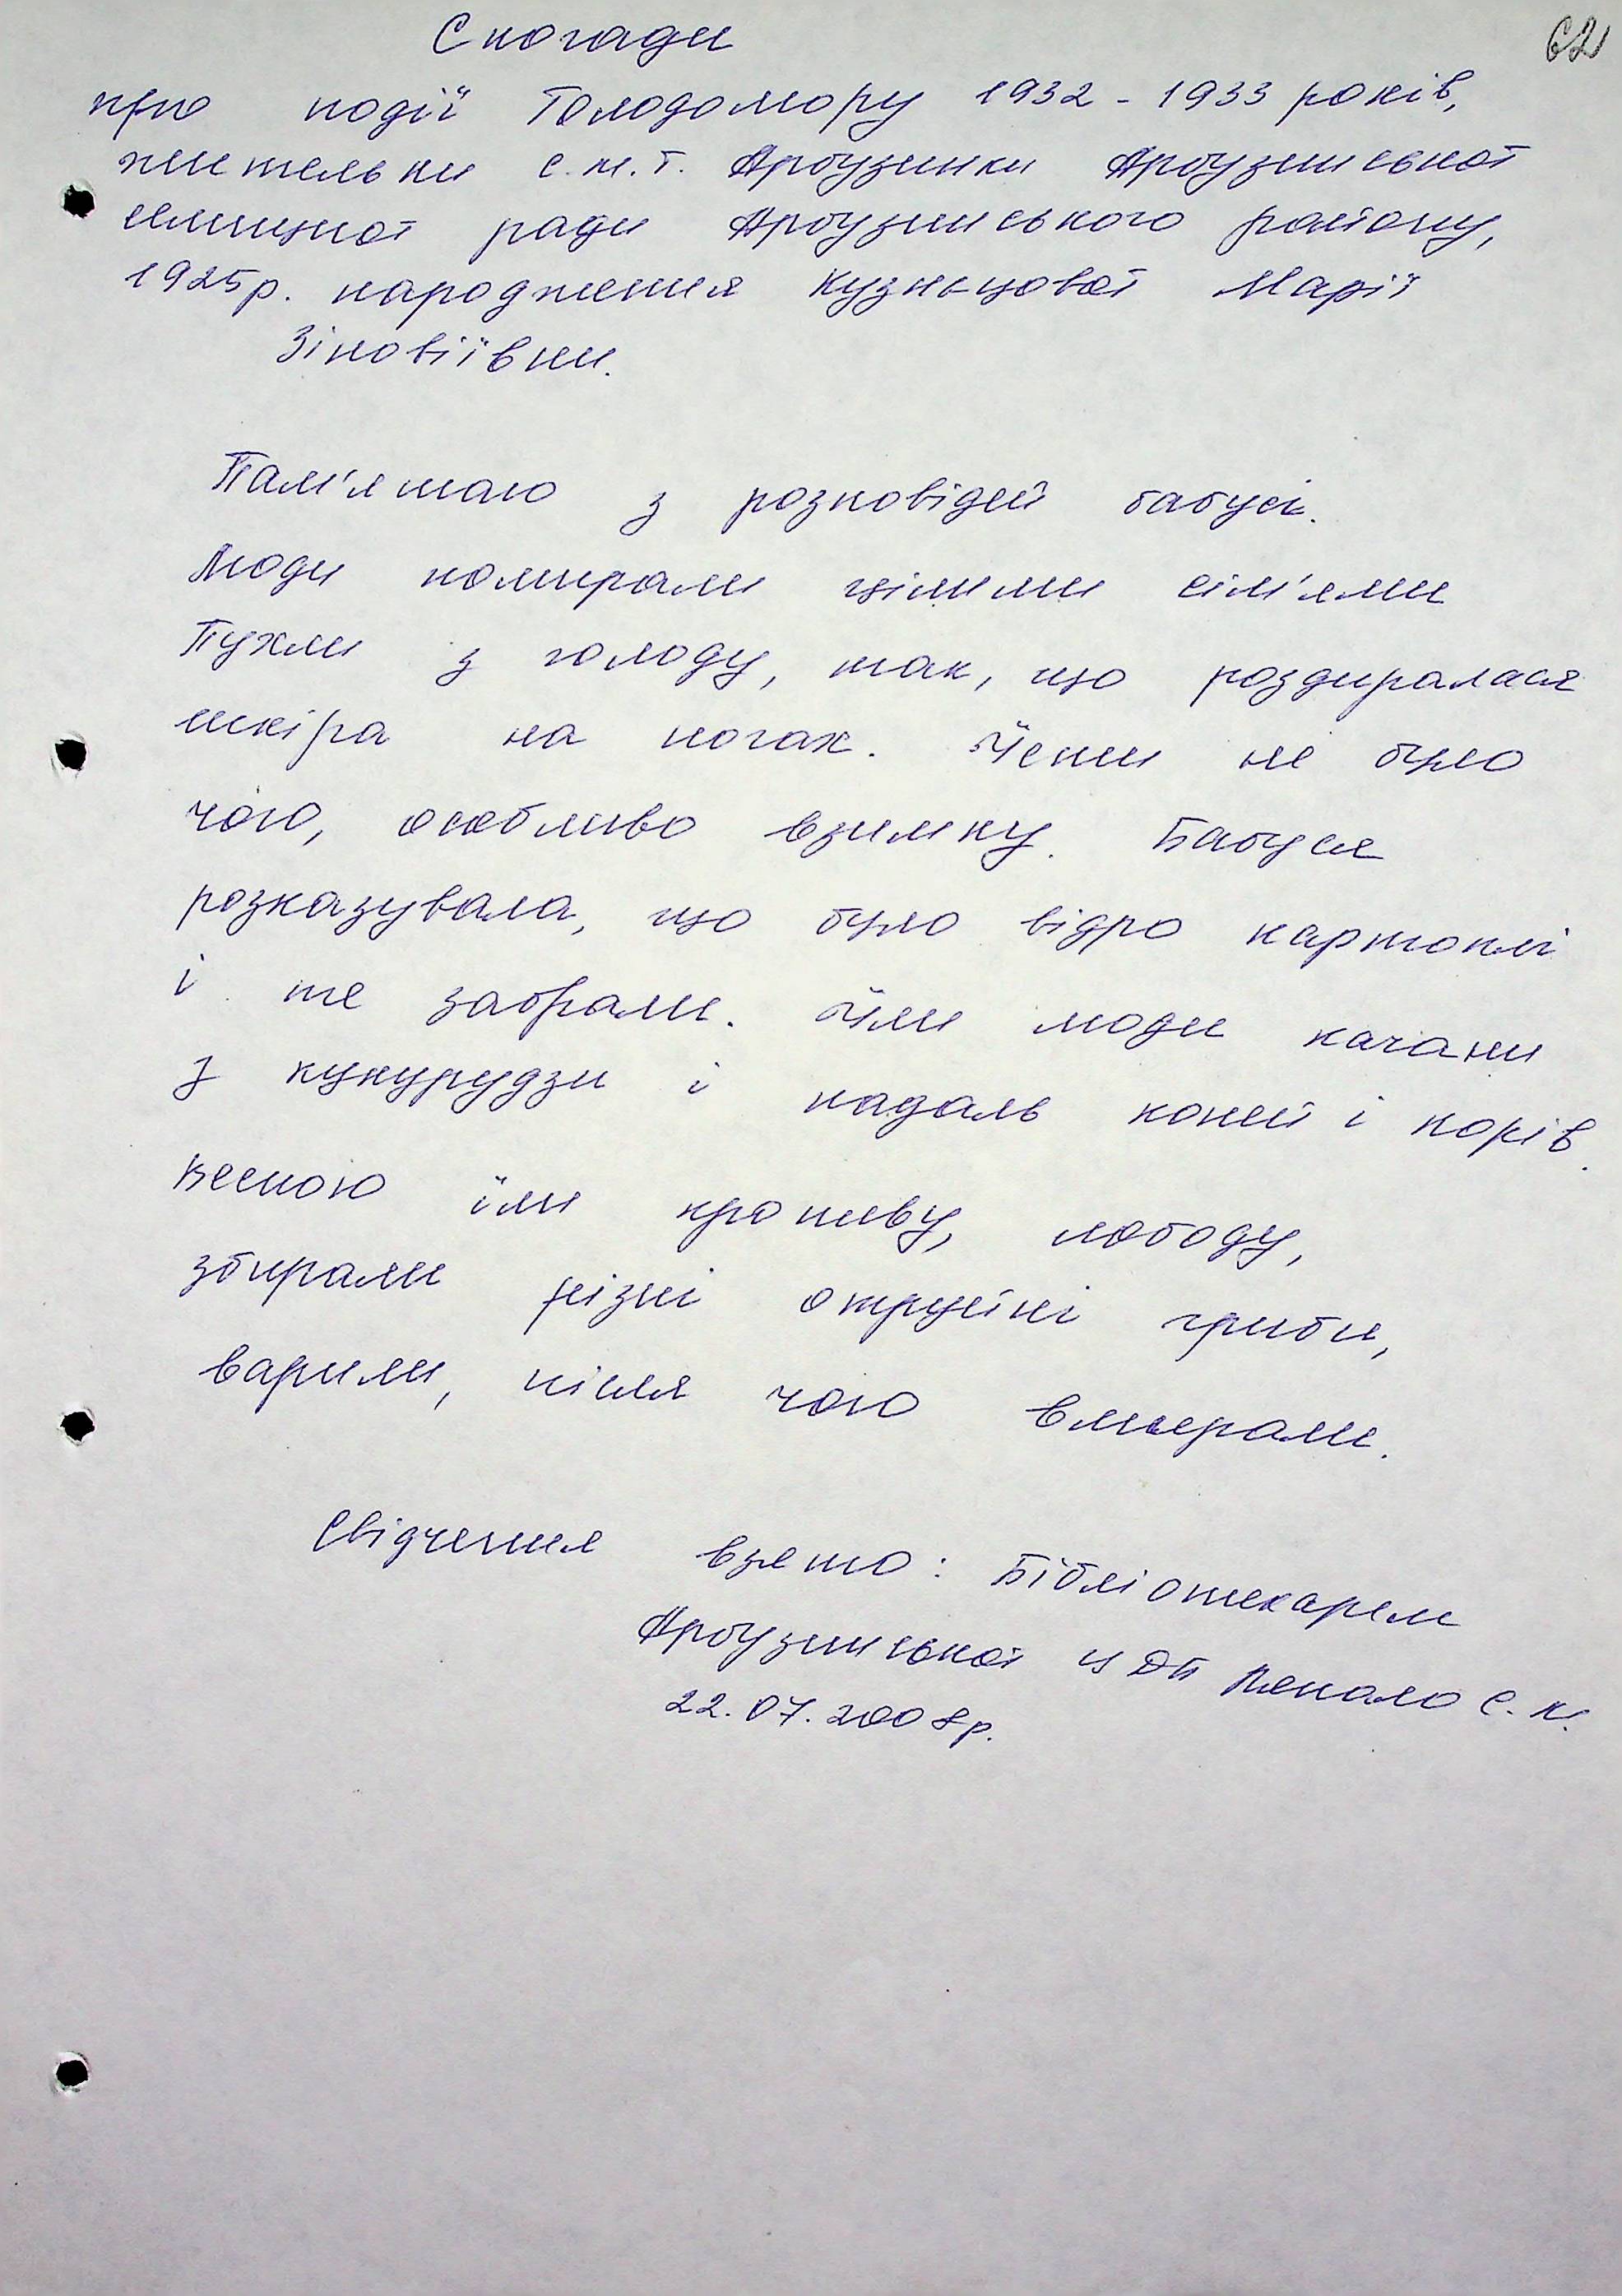 62
Спогади
про події Голодомору 1932 - 1933 років,
жительки с.м.т. Арбузинки Арбузинської
селищної ради Арбузинського району,
1925р. народження Кузнєцової Марії
Зіновіївни.
Пам'ятаю з розповідей бабусі.
Люди помирали цілими сім'ями
Пухли з голоду, так, що роздиралася
шкіра на ногах. Їсти не було
чого, особливо взимку. Бабуся
розказувала, що було відро картоплі
і те забрали. Їли люди качани
з кукурудзи і падаль коней і корів.
Весною їли кропиву, лободу,
збирали різні отруйні гриби,
варили, після чого вмирали.
Свідчення взято: Бібліотекарем
Арбузинської ЦДБ С.К.
22.07.2008р.